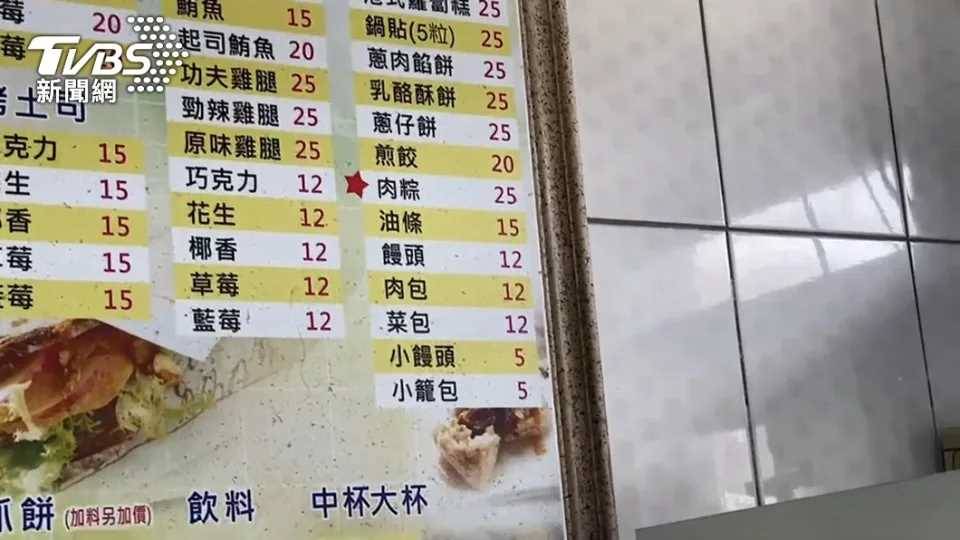 TVBS
新聞網
莓
莓 20
土司
克力 15
生 15
香 15
莓 15
莓 15
鮪魚 15
起司鮪魚 20
功夫雞腿 25
勁辣雞腿 25
原味雞腿 25
巧克力 12
花生 12
椰香 12
草莓 12
藍莓 12
港式蘿蔔糕 25
鍋貼(5粒) 25
蔥肉餡餅 25
乳酪酥餅 25
蔥仔餅 25
煎餃 20
肉粽 25
油條 15
饅頭 12
肉包 12
菜包 12
小饅頭 5
小籠包 5
抓餅 (加料另加價) 飲料 中杯大杯